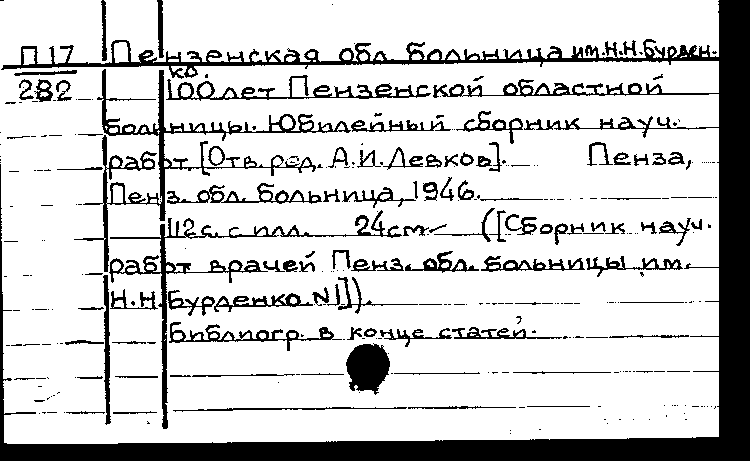 П 17 Пензенская обл. больница им. Н.Н. Бурден-
ко.
282 100 лет Пензенской областной
больницы. Юбилейный сборник науч.
работ. [Отв. ред. А.И. Левков]. Пенза,
Пенз. обл. больница, 1946.
112 с. с илл. 24 см. ([Сборник науч.
работ врачей Пенз. обл. больницы им.
Н.Н. Бурденко N 1]).
Библиогр. в конце статей.